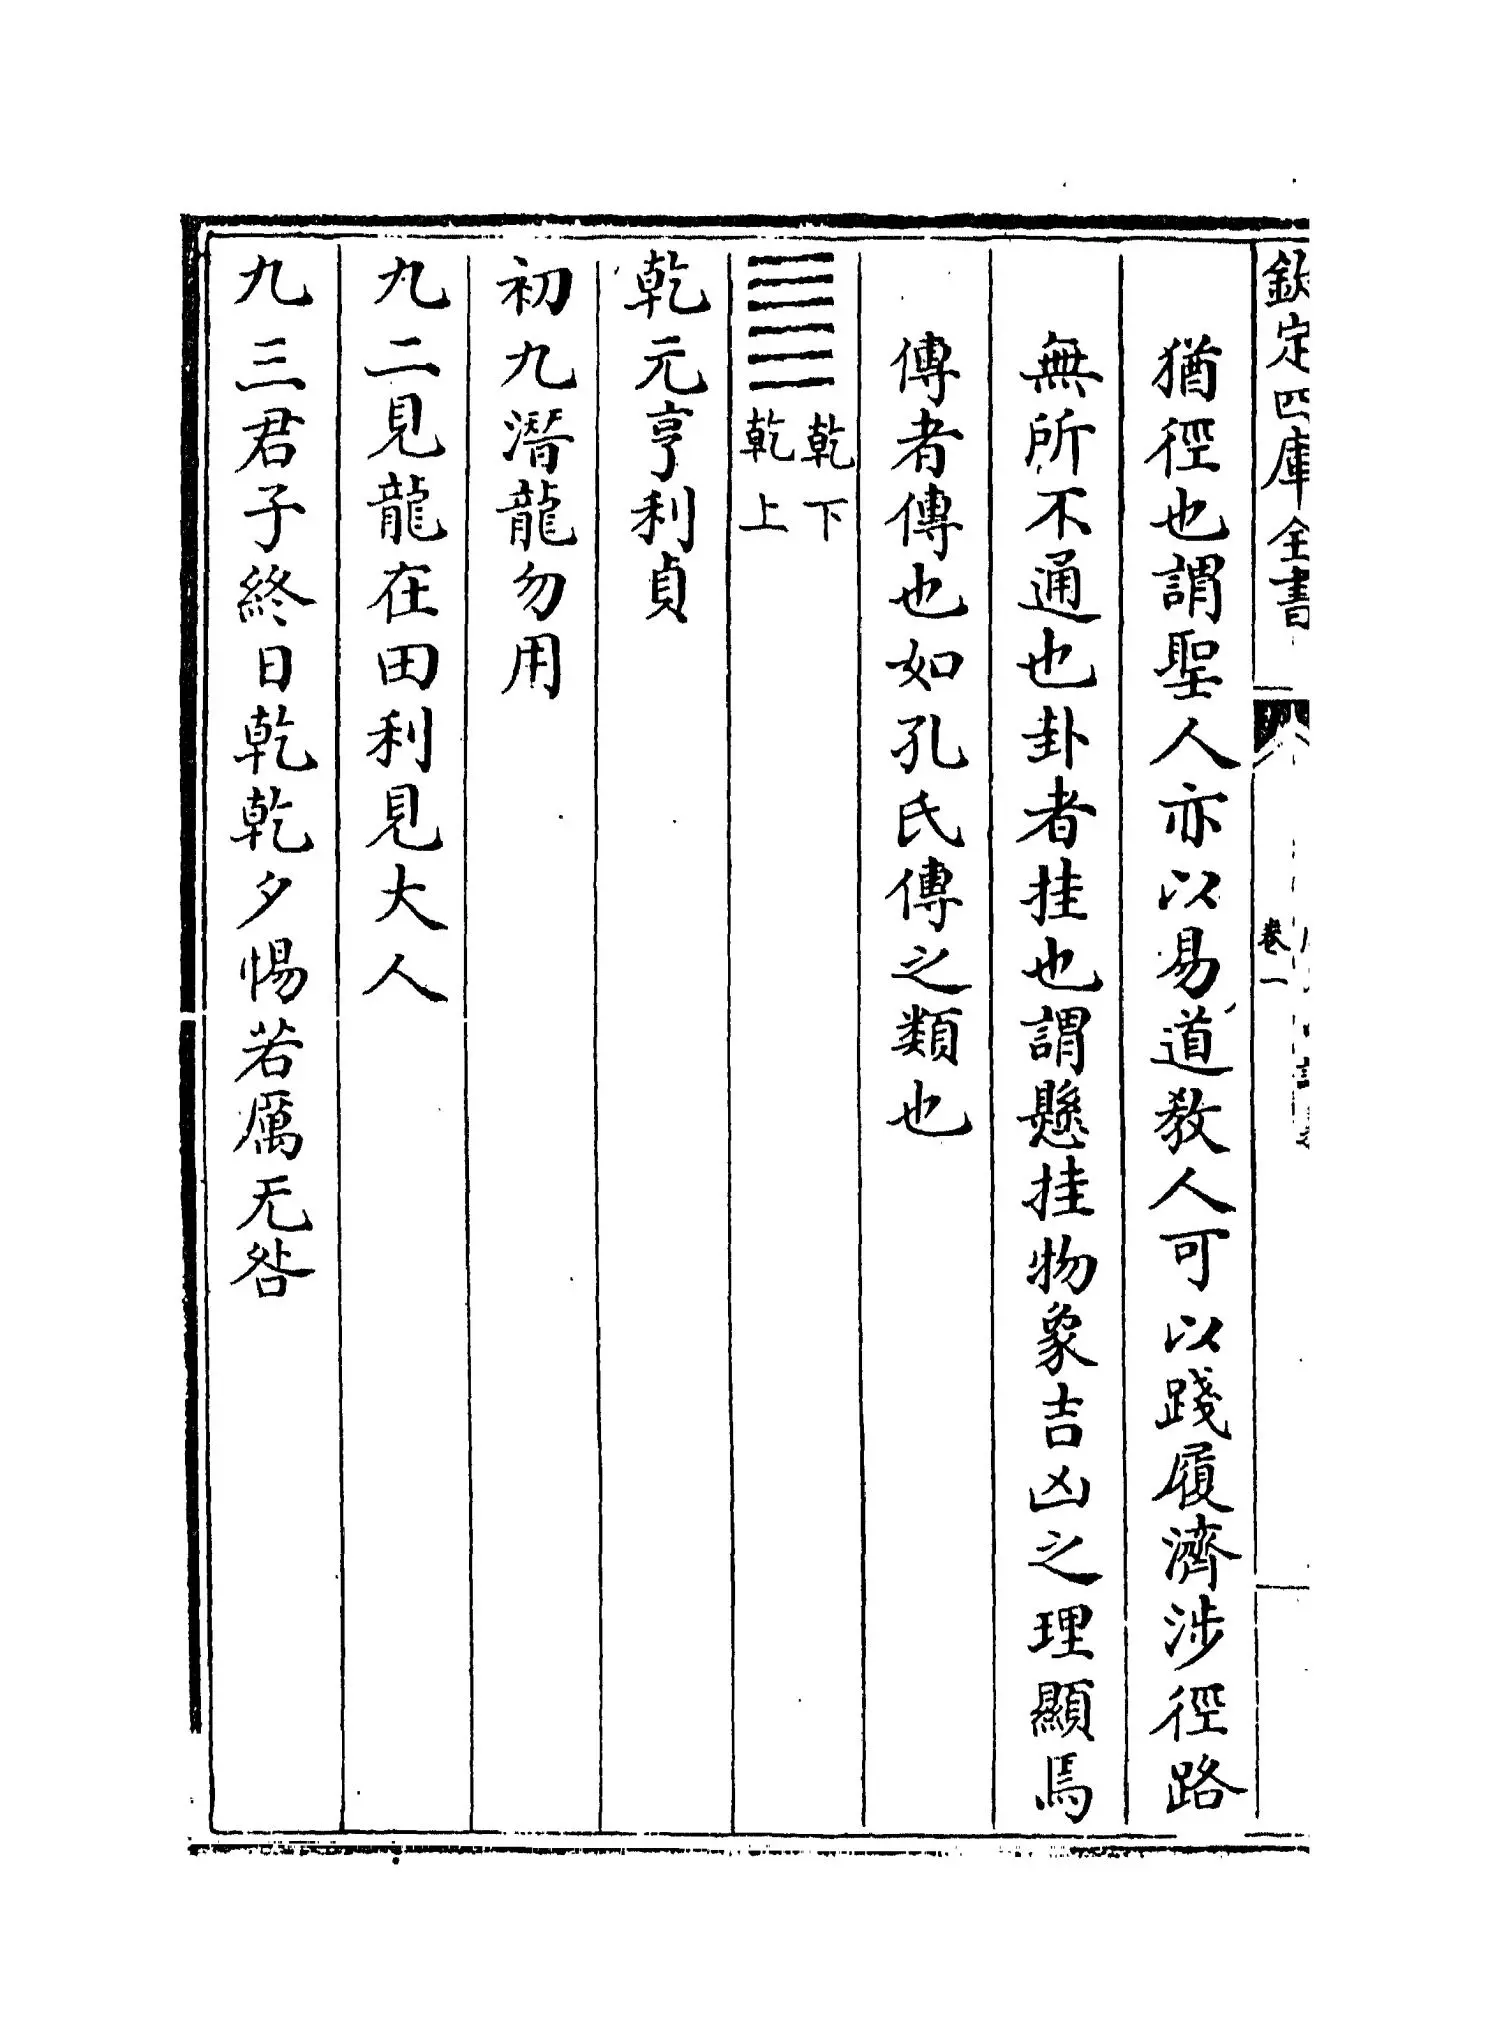 欽定四庫全書
卷一
猶徑也謂聖人亦以易道教人可以踐履濟涉徑路
無所不通也卦者挂也謂懸挂物象吉凶之理顯焉
傳者傳也如孔氏傳之類也
乾下
乾上
乾元亨利貞
初九潛龍勿用
九二見龍在田利見大人
九三君子終日乾乾夕惕若厲无咎